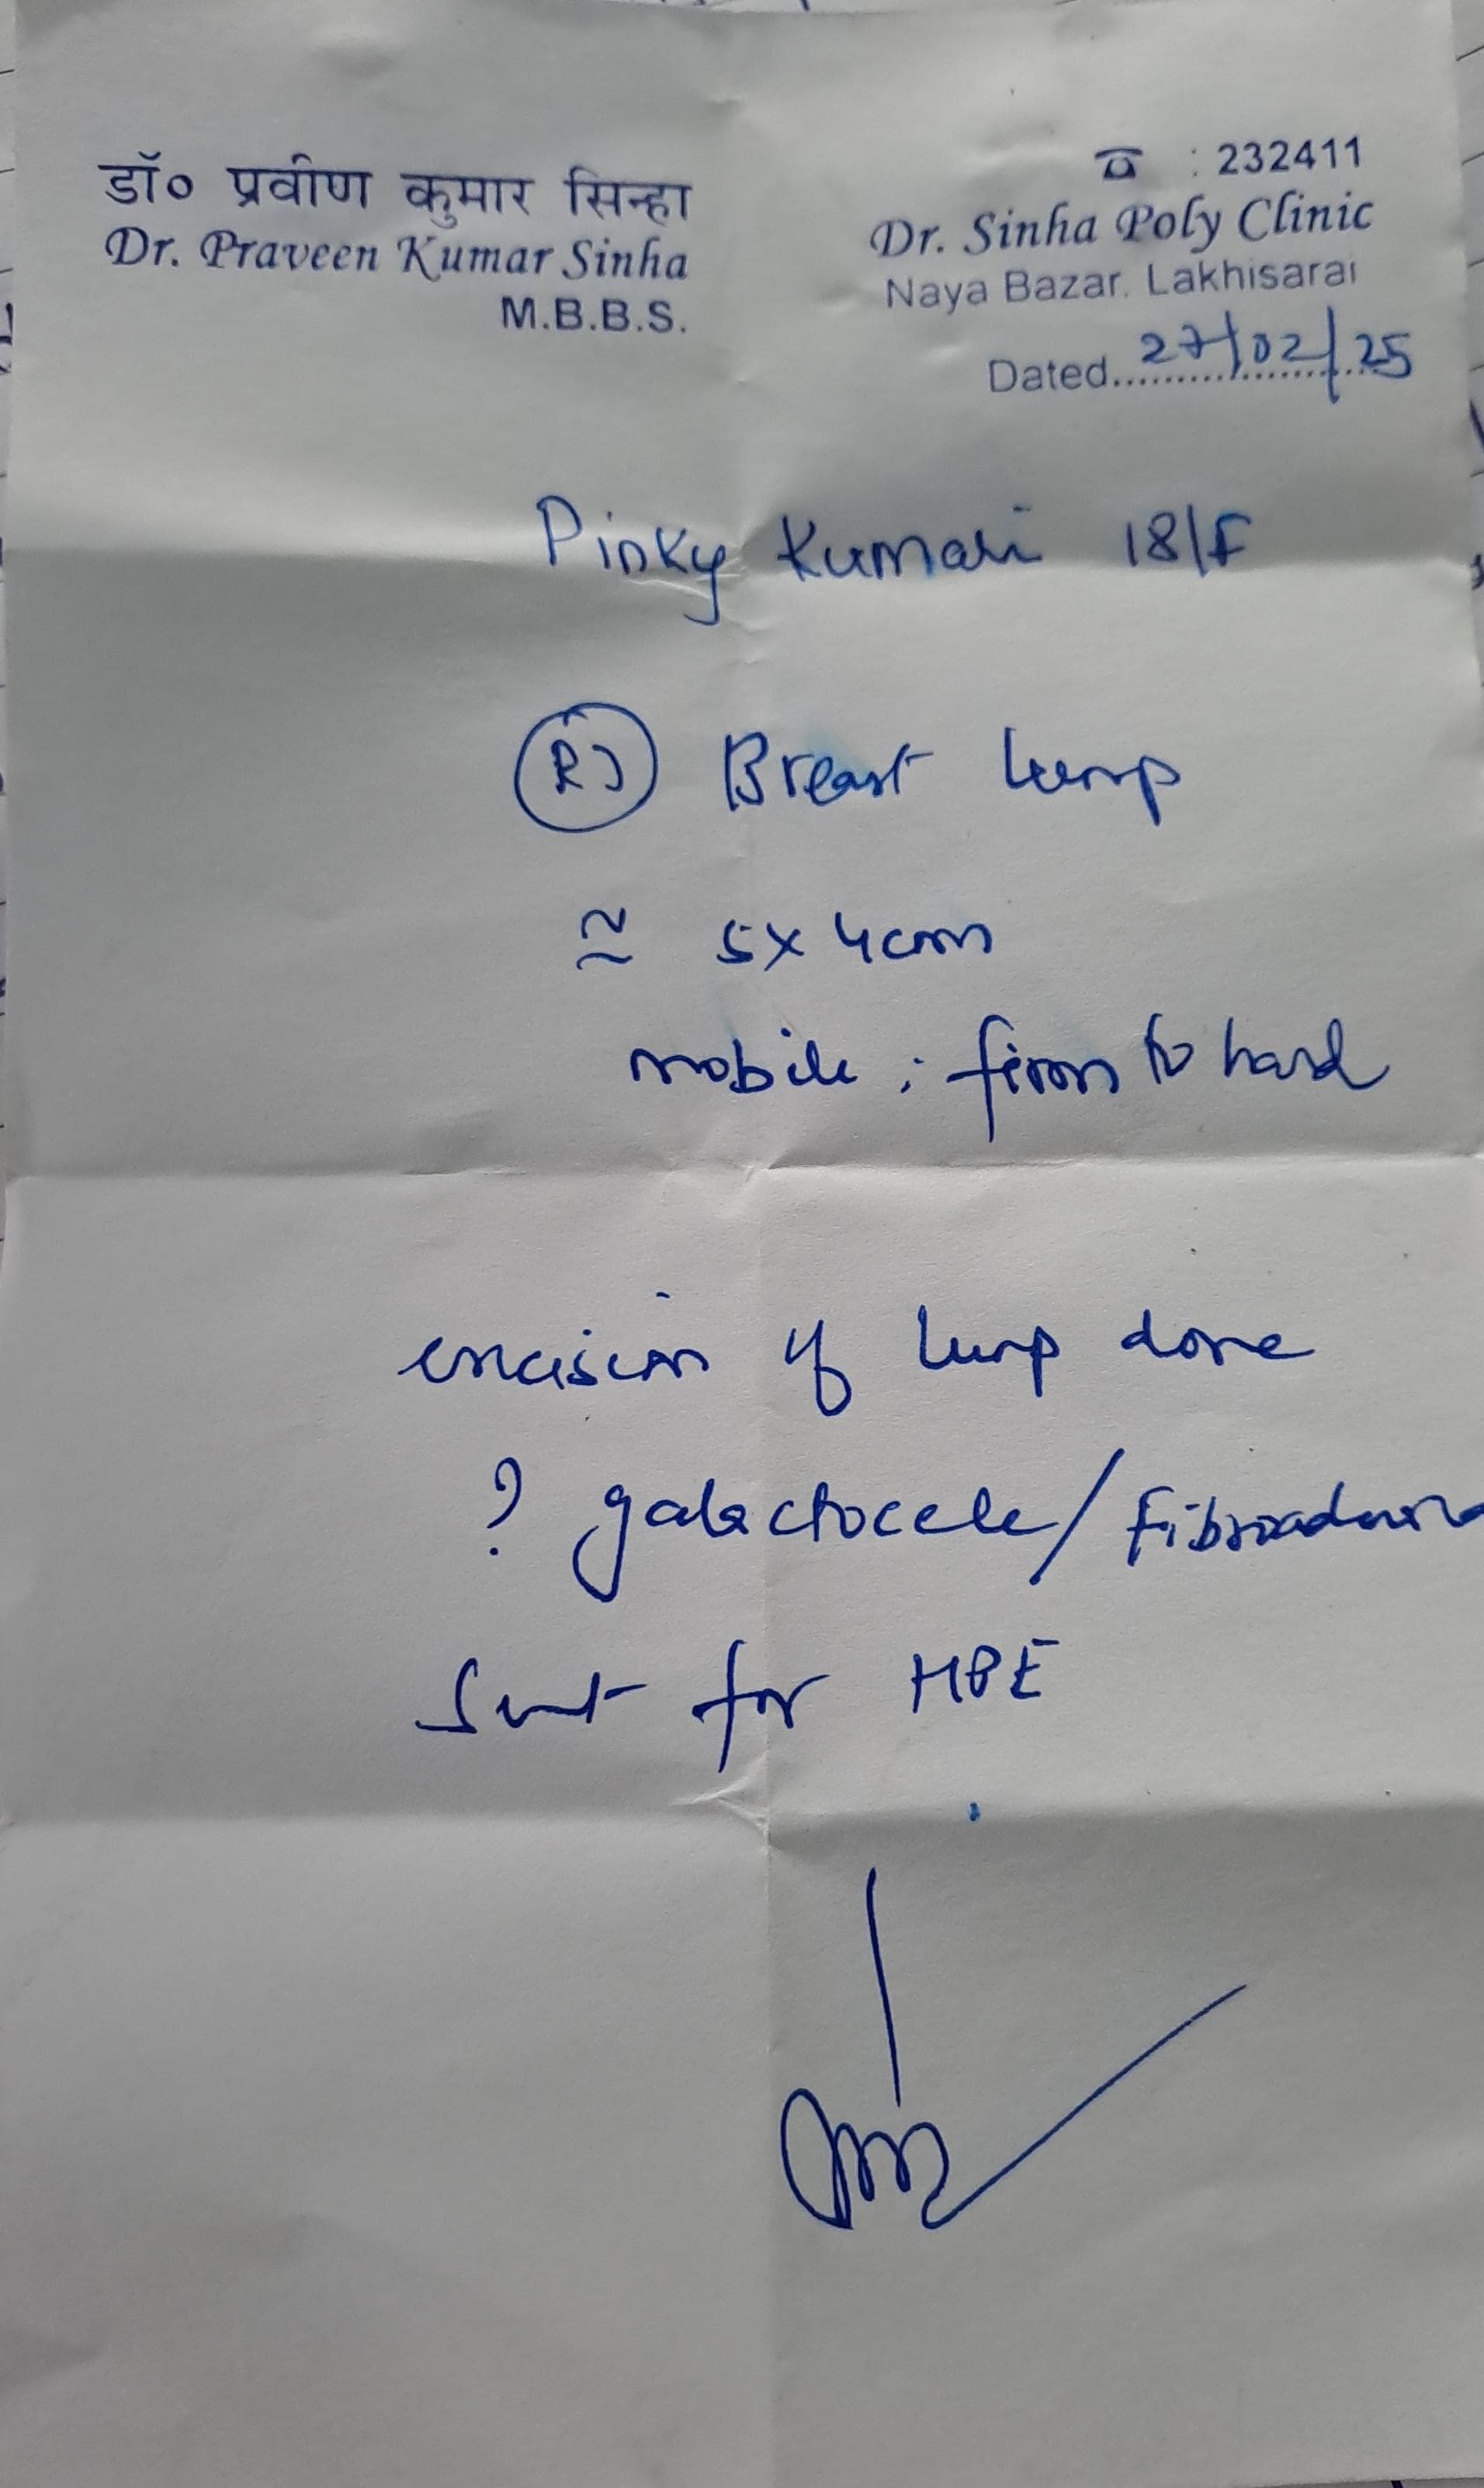 डॉ० प्रवीण कुमार सिन्हा
Dr. Praveen Kumar Sinha
M.B.B.S.
: 232411
Dr. Sinha Poly Clinic
Naya Bazar, Lakhisarai
Dated.................... 27/02/25
Pinky Kumari 18/F
(R) Breast lump
≅ 5x4cm
mobile ; firm to hard
excision of lump done
? galactocele/Fibroadenoma
Sent for HPE